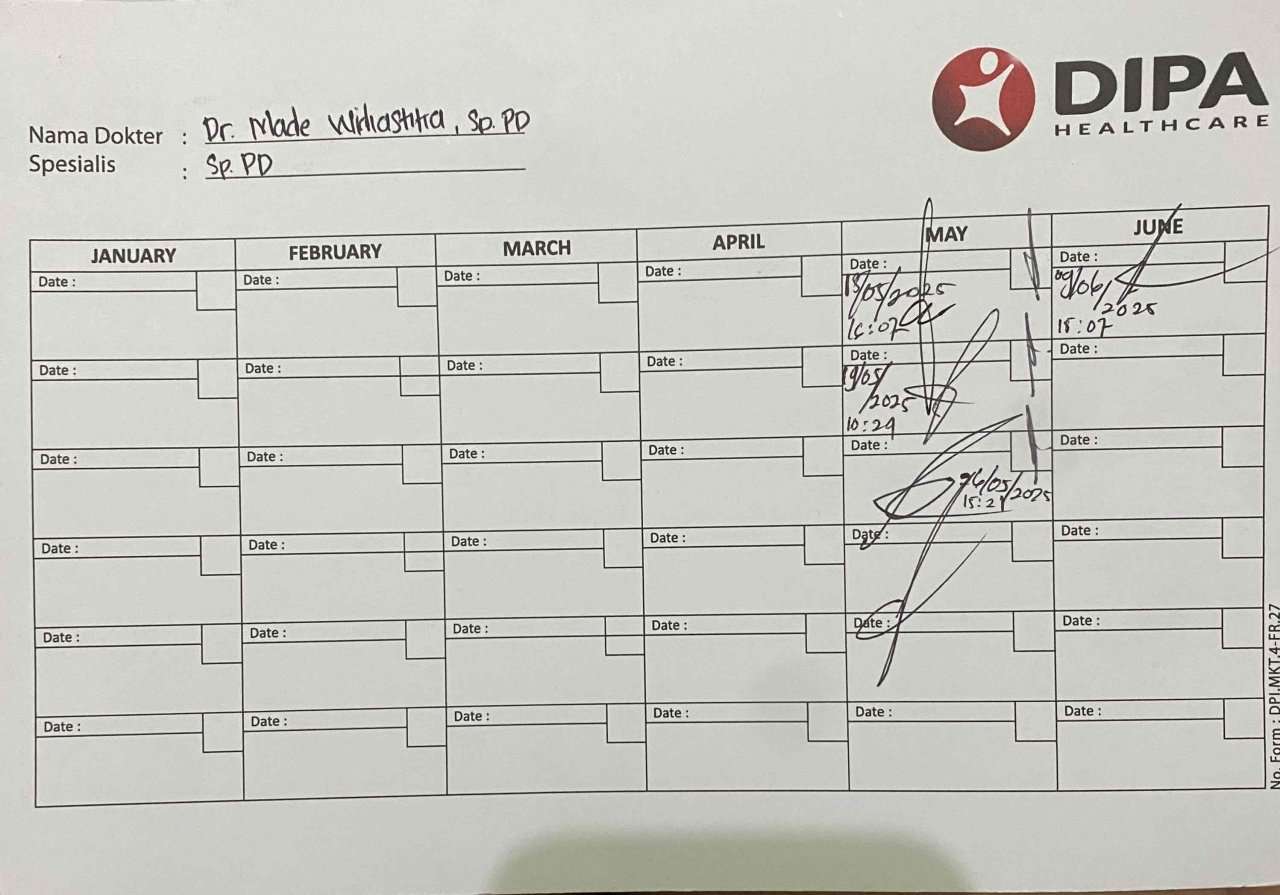 DIPA
HEALTHCARE
Nama Dokter : Dr. Made Widiastika, Sp. PD
Spesialis : Sp. PD
JANUARY FEBRUARY MARCH APRIL MAY JUNE
Date : Date : Date : Date : Date : Date :
/05/2025 09/06/2025
15:07 15:07
Date : Date : Date : Date : Date : Date :
19/05/2025
10:29
Date : Date : Date : Date : Date : Date :
26/05/2025
15:21
Date : Date : Date : Date : Date : Date :
Date : Date : Date : Date : Date : Date :
Date : Date : Date : Date : Date : Date :
No. Form : DPI.MKT.4-FR.27